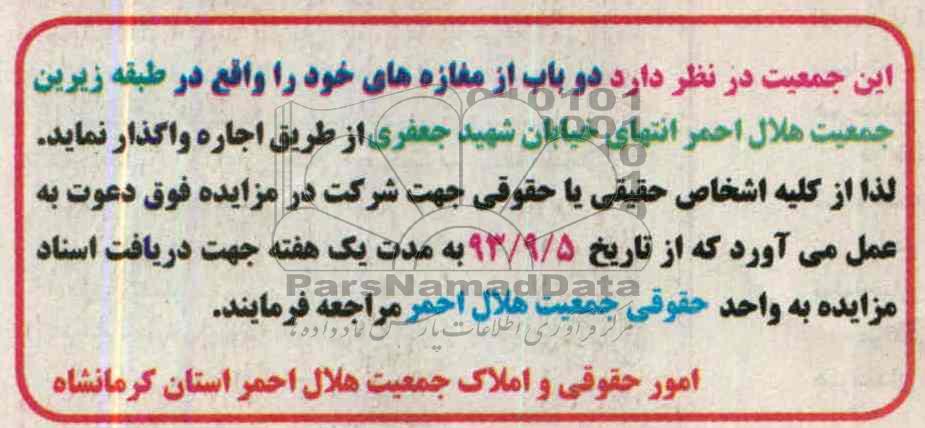 این جمعیت در نظر دارد دو باب از مغازه های خود را واقع در طبقه زیرین
جمعیت هلال احمر انتهای خیابان شهید جعفری از طریق اجاره واگذار نماید.
لذا از کلیه اشخاص حقیقی یا حقوقی جهت شرکت در مزایده فوق دعوت به
عمل می آورد که از تاریخ ۹۳/۹/۵ به مدت یک هفته جهت دریافت اسناد
مزایده به واحد حقوقی جمعیت هلال احمر مراجعه فرمایند.
امور حقوقی و املاک جمعیت هلال احمر استان کرمانشاه
010101
ParsNamadData
مرکز فرآوری اطلاعات پارس نماد داده ها